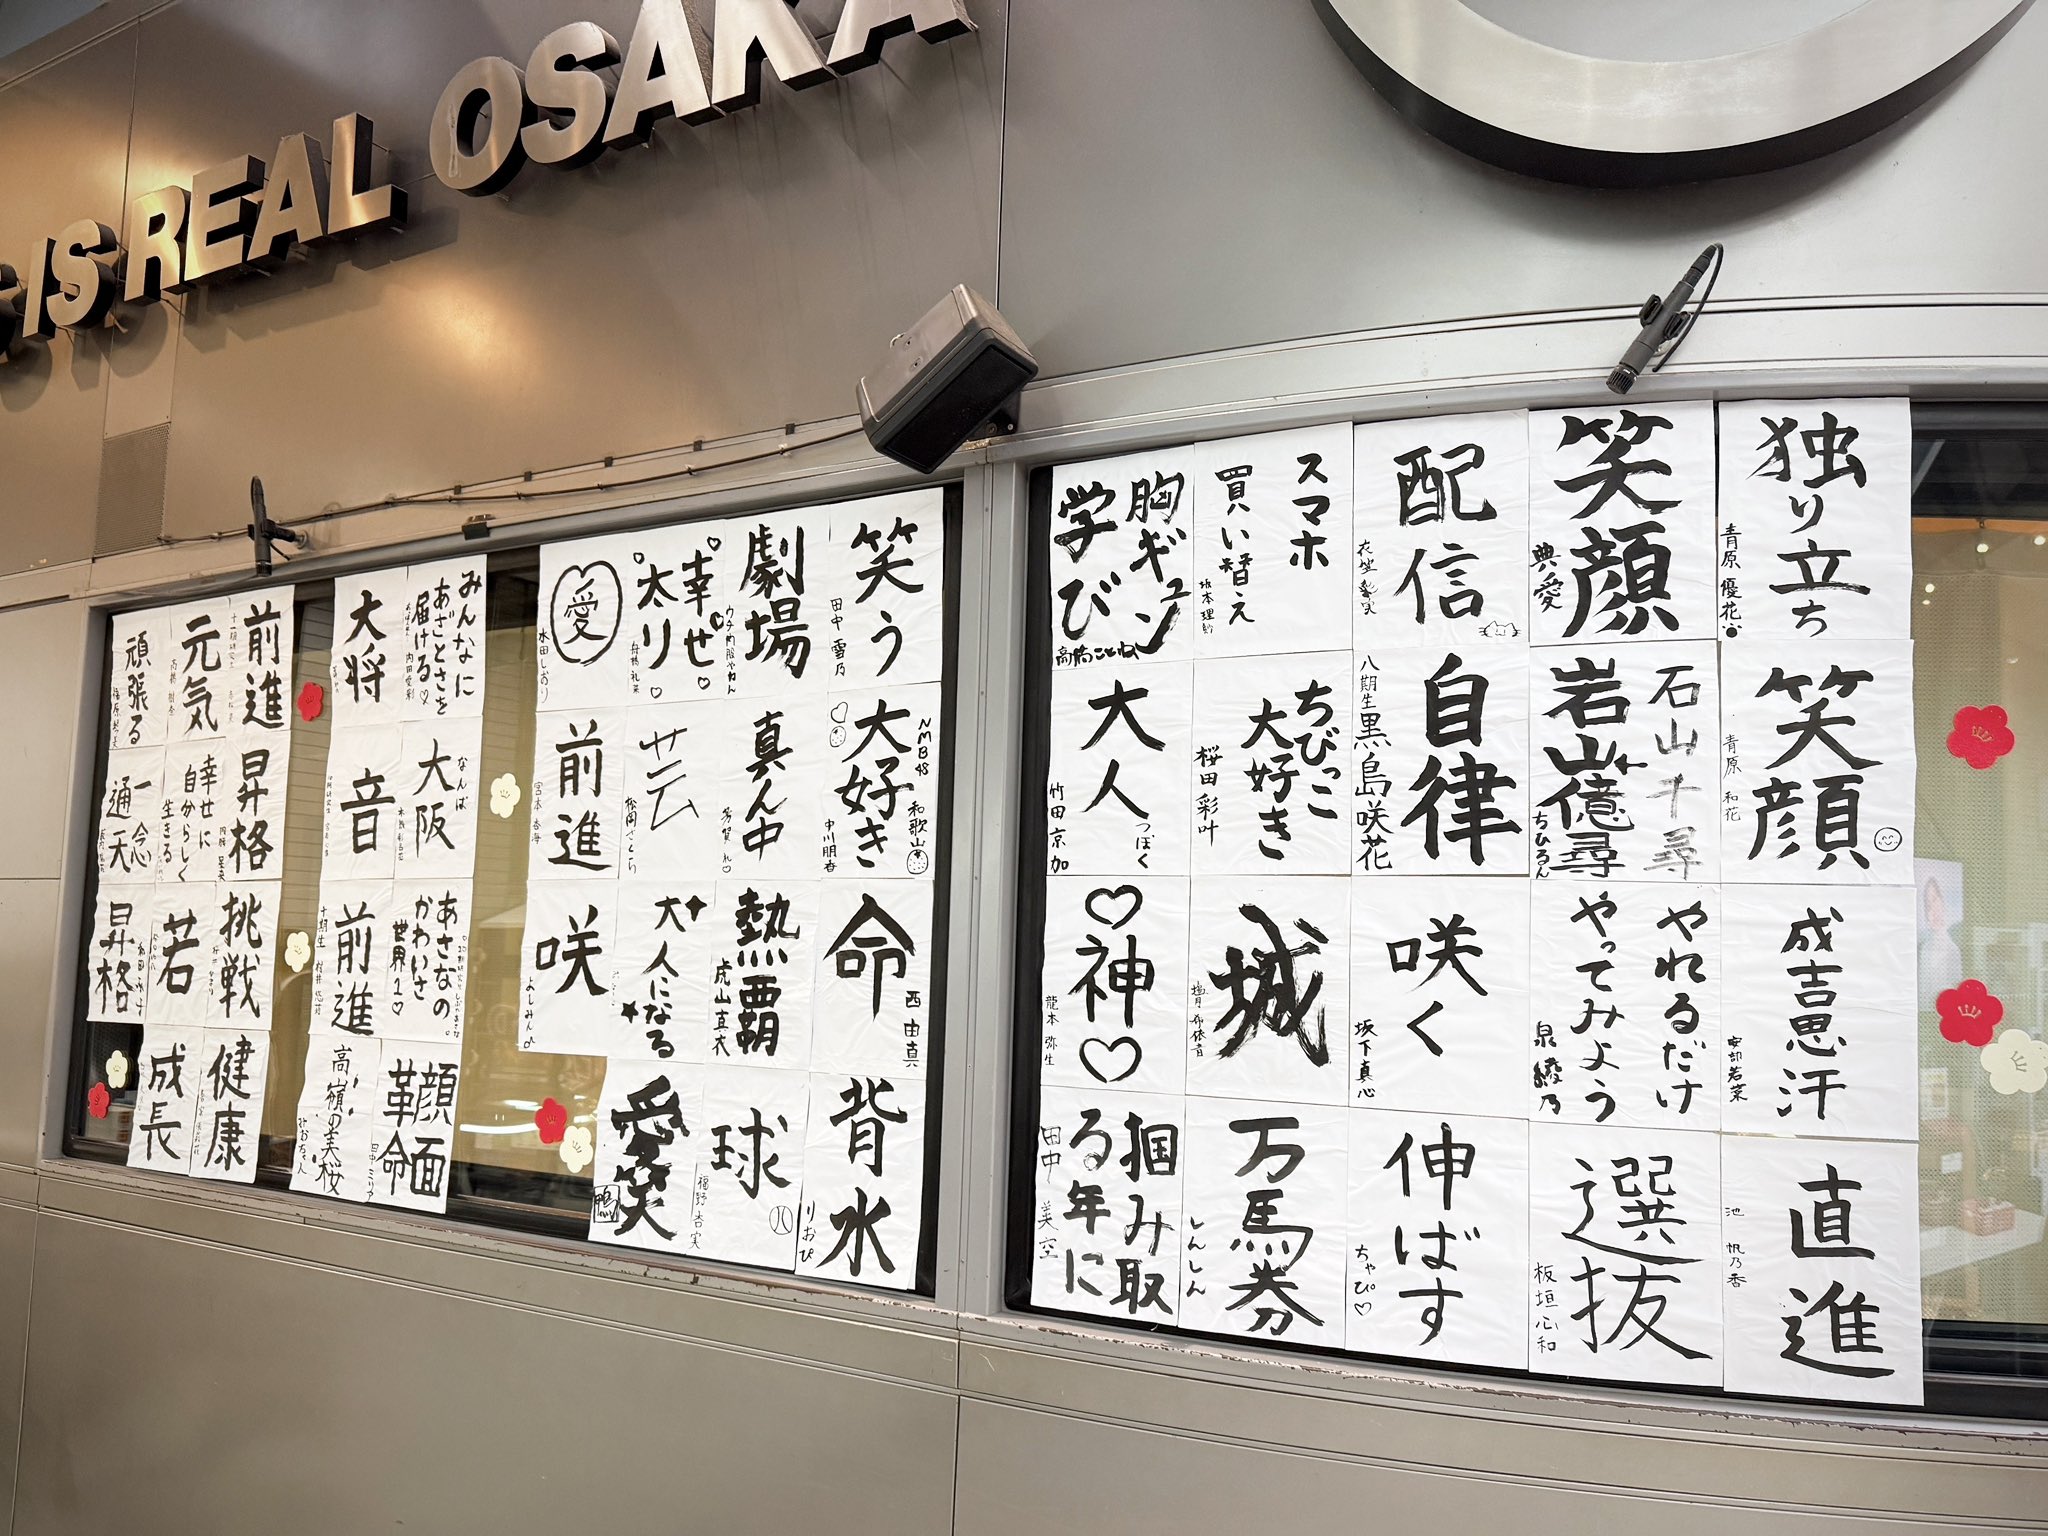 IS REAL OSAKA
独り立ち
青原 優花
笑顔
典愛
配信
スマホ
買い替え
坂本理紗
胸ギュン
学び
高橋ことね
笑顔
青原 和花
石山千尋
岩山億尋
ちひろん
自律
八期生 黒島咲花
ちびっこ
大好き
桜田彩叶
大人
つぼく
竹田京加
成吉思汗
安部若菜
やれるだけ
やってみよう
泉綾乃
咲く
坂下真心
城
塩月希依音
神
龍本弥生
直進
池 帆乃香
選抜
板垣心和
伸ばす
ちゃぴ♡
万馬券
しんしん
掴み取
る年に
田中 美空
笑う
田中 雪乃
劇場
幸せ
太り
愛
水田しおり
NMB48
大好き
和歌山
中川朋香
真ん中
芸
松岡さとち
前進
宮本 杏海
命
西 由真
熱覇
虎山真衣
大人になる
咲
よしみん
背水
りおぴ
球
福野杏実
愛笑
鴨
みんなに
あざとさを
届ける♡
大将
なんば
大阪
音
あさなの
かわいさ
世界1♡
前進
十期生 村井悠莉
顔面
革命
田中ミリア
高嶺の美桜
みおちゃん
前進
元気
頑張る
昇格
幸せに
自分らしく
生きる
一念
通天
挑戦
若
昇格
健康
成長